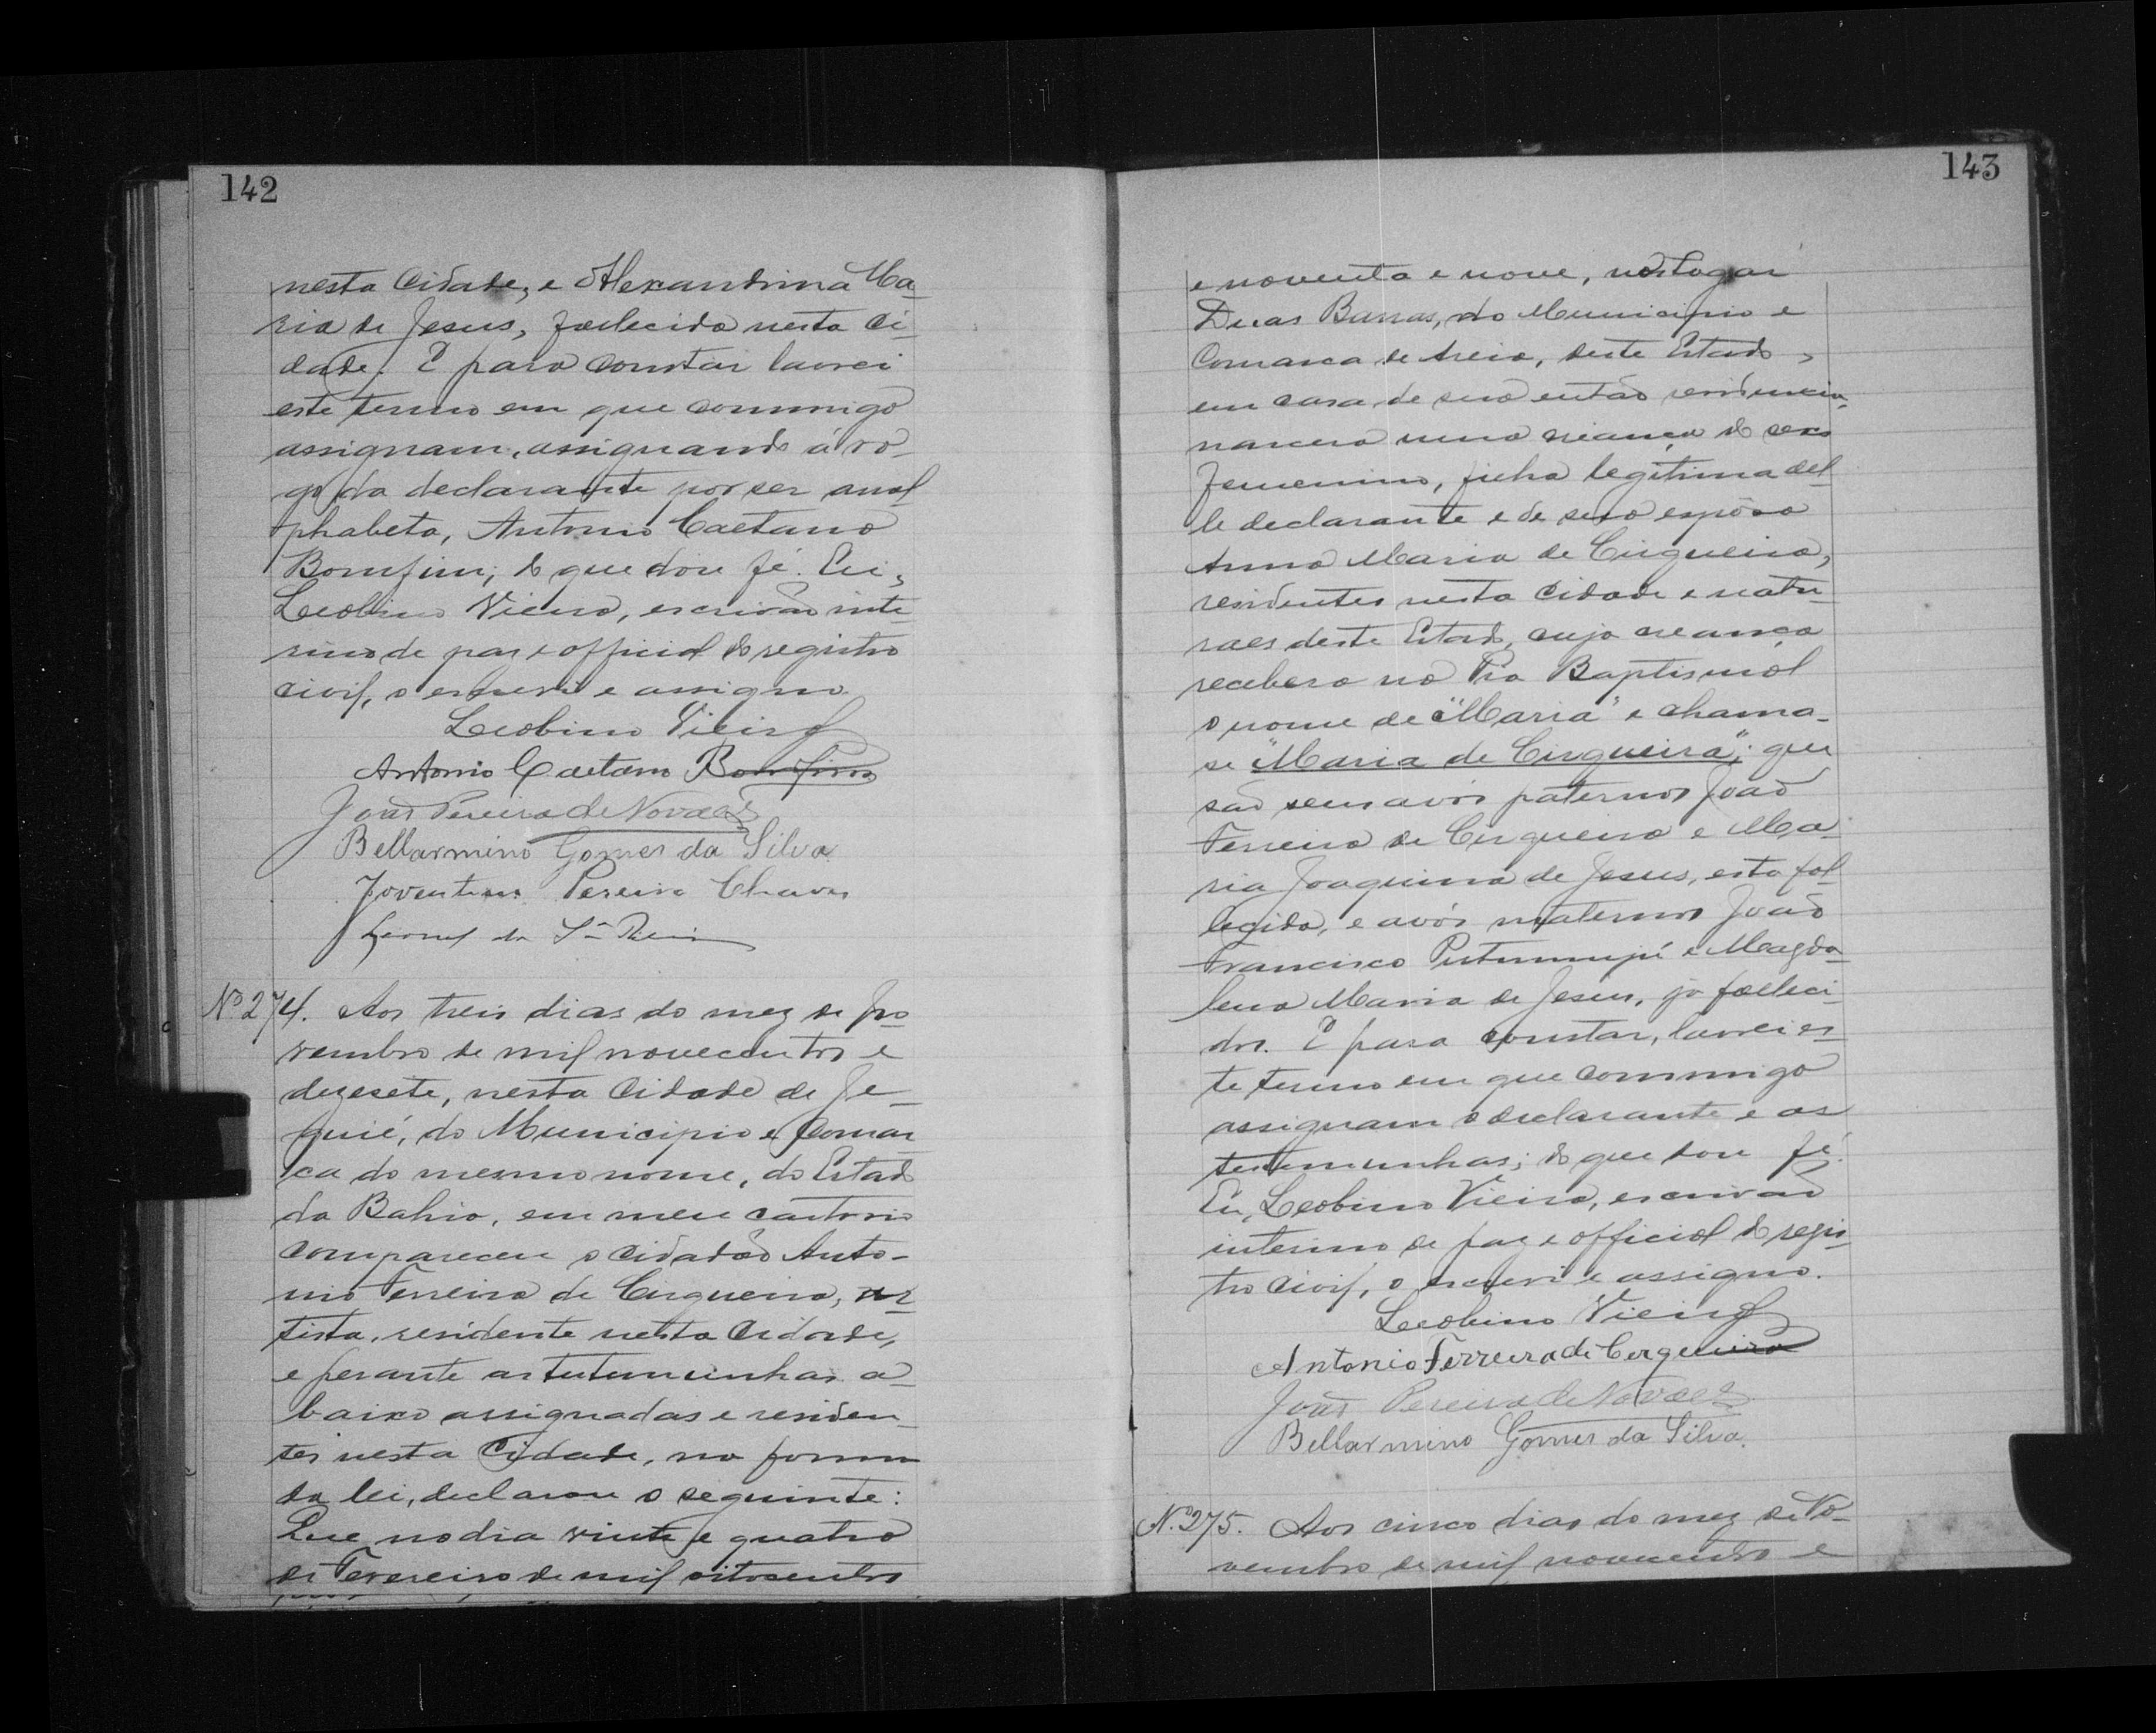 142
nesta Cidade, e Alexandrina Ma-
ria de Jesus, fallecida nesta Ci-
dade. E para constar lavrei
este termo em que commigo
assignam, assignando á ro-
go da declarante por ser anal-
phabeta, Antonio Caetano
Bomfim; do que dou fé. Eu,
Leobino Vieira, escrivão inte-
rino de paz e official do registro
civil, o escrevi e assigno.
Leobino Vieira
Antonio Caetano Bomfim
João Pereira de Novaes
Bellarmino Gomes da Silva
Joventino Pereira Chaves
Leonel da
Nº 274. Aos treis dias do mez de No-
vembro de mil novecentos e
dezesete, nesta Cidade de Je-
quié, do Municipio e Comar-
ca do mesmo nome, do Estado
da Bahia, em meu cartorio
compareceu o cidadão Anto-
nio Ferreira de Cirqueira, ar-
tista, residente nesta Cidade,
e perante as testemunhas a-
baixo assignadas e residen-
tes nesta Cidade, na forma
da lei, declarou o seguinte:
Que no dia vinte e quatro
de Fevereiro de mil oitocentos
143
e noventa e nove, no Logar
Duas Barras, do Municipio e
Comarca de Areia, deste Estado,
em casa de sua então residencia,
nascera uma creança do sexo
femenino, filha legitima del-
le declarante e de sua espôsa
Anna Maria de Cirqueira,
residentes nesta Cidade e natu-
raes deste Estado, cuja creança
recebera na Pia Baptismal
o nome de "Maria" e chama-
se "Maria de Cirqueira"; que
são seus avós paternos João
Ferreira de Cirqueira e Ma-
ria Joaquina de Jesus, esta fal-
lecida, e avós maternos João
Francisco e Magda-
lena Maria de Jesus, já falleci-
dos. E para constar, lavrei es-
te termo em que commigo
assignam o declarante e as
testemunhas; do que dou fé.
Eu, Leobino Vieira, escrivão
interino de paz e official do regis-
tro civil, o escrevi e assigno.
Leobino Vieira
Antonio Ferreira de Cerqueira
João Pereira de Novaes
Bellarmino Gomes da Silva.
N.º 275. Aos cinco dias do mez de No-
vembro de mil novecentos e